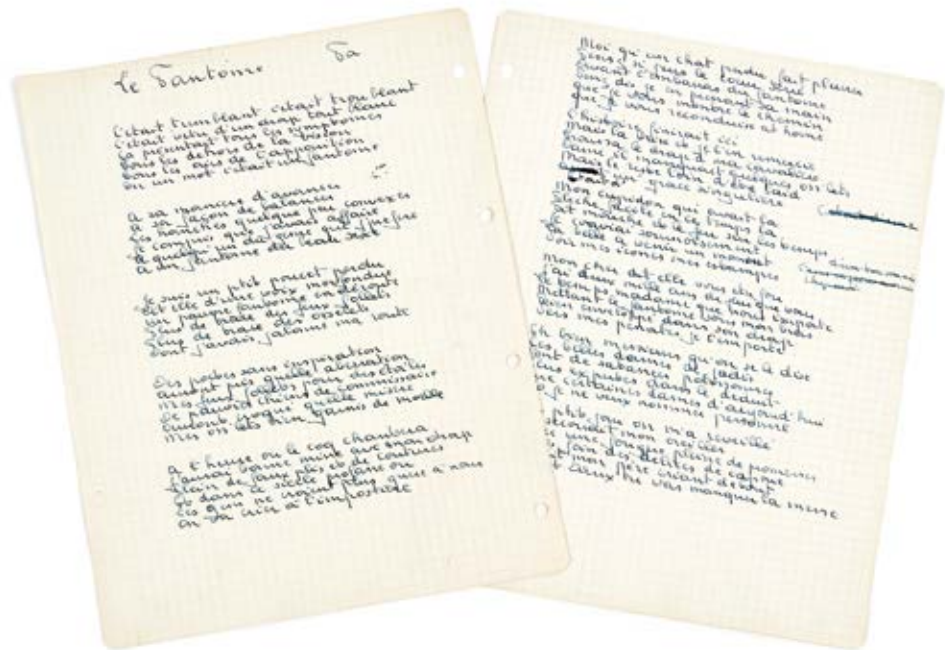 Le Fantôme Fa
C'était tremblant c'était troublant
C'était vêtu d'un drap tout blanc
Ça présentait tous les symptômes
Tous les dehors de la vision
les airs de l'apparition
En un mot c'était un fantôme
A sa manière d'avancer
A sa façon de balancer
Les hanches quelque peu convexes
Je compris que j'avais affaire
A quelqu'un du genre que j'préfère
A un fantôme du beau sexe
Je suis un p'tit poucet perdu
dit elle d'une voix morfondue
Un pauvre fantôme en déroute
Plus de trace des feux follets
Plus de trace des osselets
Dont j'avais jalonné ma route
Des poètes sans inspiration
auront pris quelle aberration
Mes feux follets pour des étoiles
De pauvres chiens de commissaire
Auront croqué quelle misère
Mes oss'lets bien garnis de moelle
A l'heure où le coq chantera
J'aurai bonne mine avec mon drap
Plein de faux plis et de coutures
Et dans ce siècle profane où
Les gens ne croient plus guère à nous
On va crier à l'imposture
Moi qu'un chat perdu fait pleurer
si j'eus le cœur serré
Devant l'embarras du fantôme
dis je en prenant sa main
Que je vous montre le chemin
Que je vous reconduise at home
L'histoire finirait ici
Mais la brise et je l'en remercie
Troussa le drap d'ma cavalière
Dame il manquait quelques oss'lets
Mais le reste loin d'être laid
d'un' grâce singulière
Mon cupidon qui avait la
Flèche facile en ce temps là
Fit mouche et le feu sur les tempes
Je conviai sournoisement
La belle à venir un moment
Voir mes icones mes estampes
Mon cher dit elle vous êtes fou
J'ai deux mille ans de plus que vous
Le temps madame que nous importe
Mettant le fantôme sous mon bras
Bien enveloppé dans son drap
Vers mes pénates je l'emporte
Eh bien messieurs qu'on se le dise
Ces belles dames de jadis
Sont de satanées polissonnes
Plus expertes dans le déduit
Que certaines dames d'aujourd'hui
je ne veux nommer personne
p'tit jour on m'a réveillé
secouait mon oreiller
une fougue pleine de promesses
foin des délices de Capoue
mon père criant debout
tu vas manquer la messe